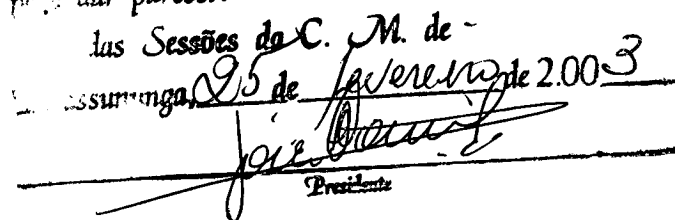 dar
das Sessões da C. M. de -
ssununga, 25 de fevereiro de 2.003
Presidente